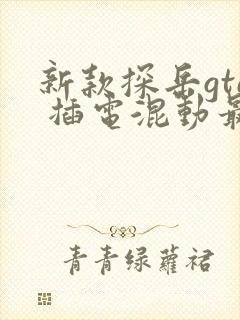 新款探岳gte
插電混動最
青青绿蘿裙